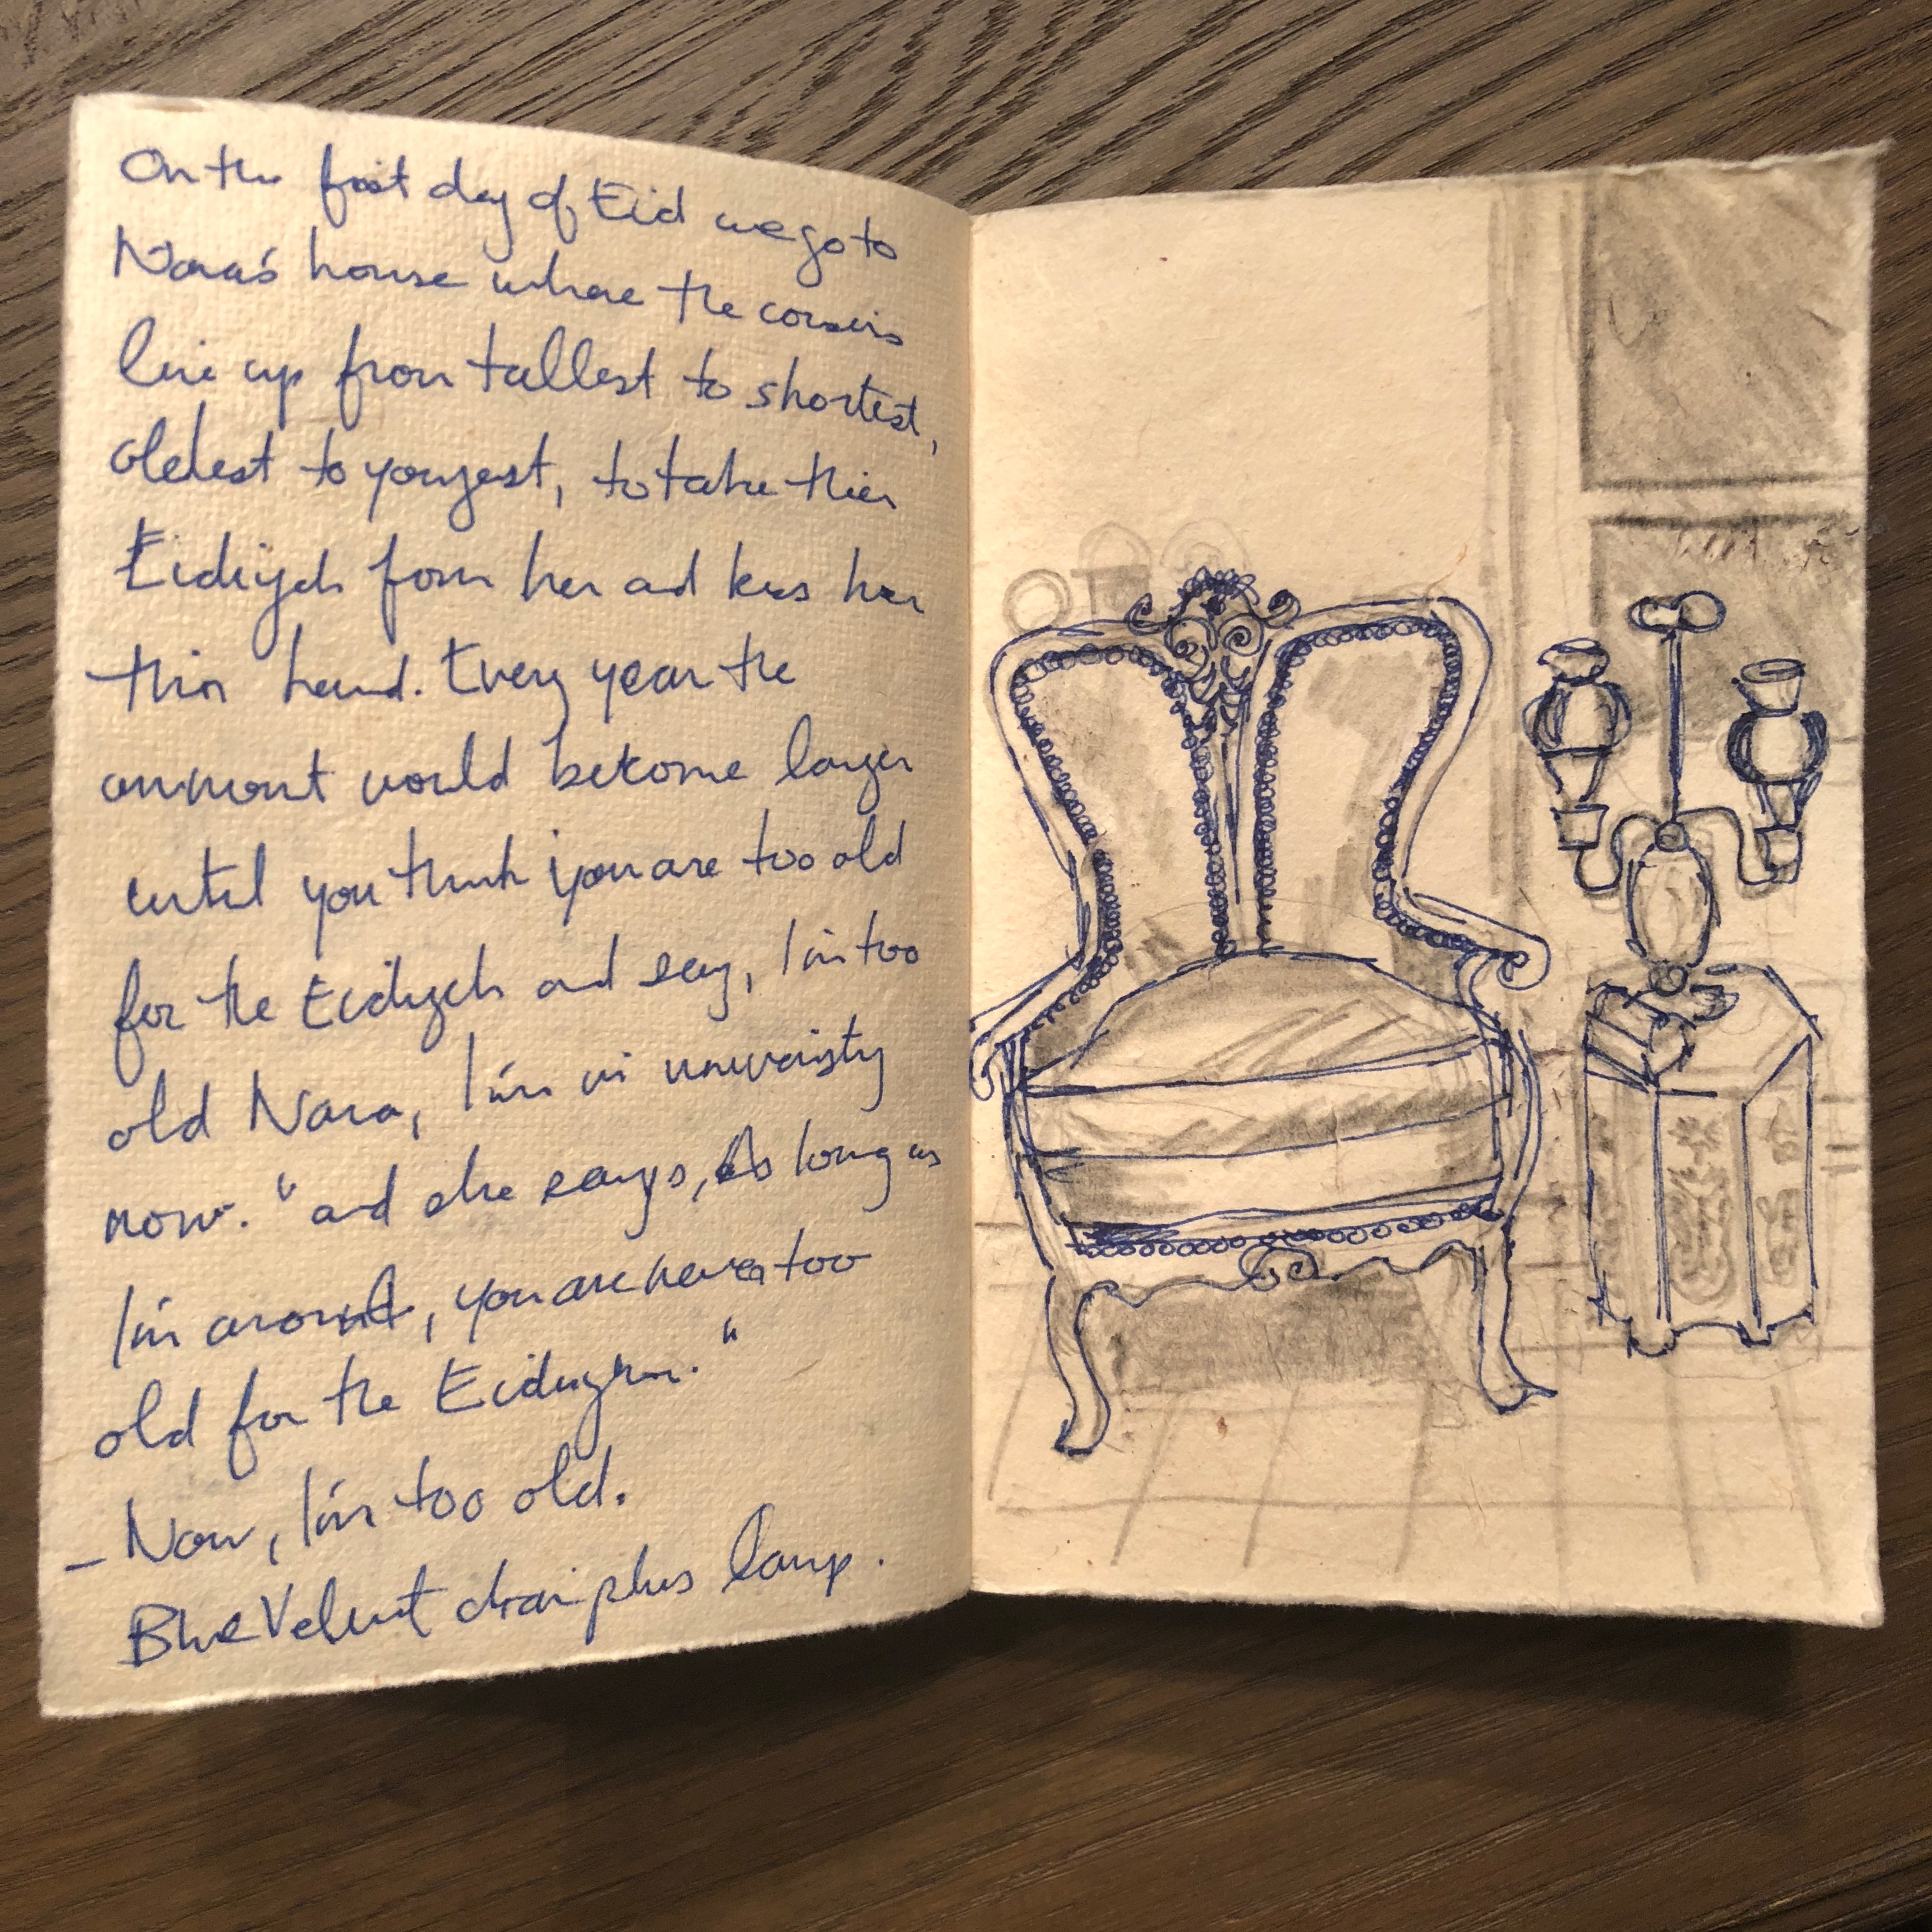 On the first day of Eid we go to
Nana's house where the cousins
line up from tallest to shortest,
oldest to youngest, to take their
Eidiyah from her and kiss her
thin hand. Every year the
ammount would become larger
until you think you are too old
for the Eidiyah and say, I'm too
old Nana, I'm in univeristy
now." and she says, As long as
I'm around, you are never too
old for the Eidiyah."
- Now, I'm too old.
Blue Velvet chair plus lamp.